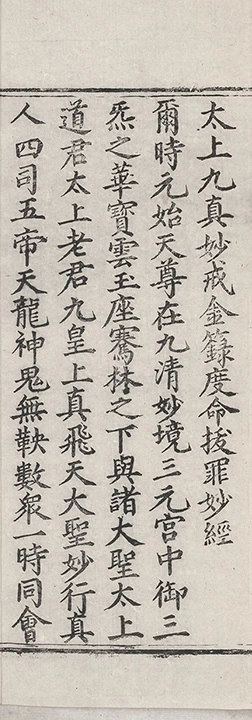 太上九真妙戒金籙度命拔罪妙經
爾時元始天尊在九清妙境三元宮中御三
炁之華寶雲玉座騫林之下與諸大聖太上
道君太上老君九皇上真飛天大聖妙行真
人四司五帝天龍神鬼無鞅數眾一時同會